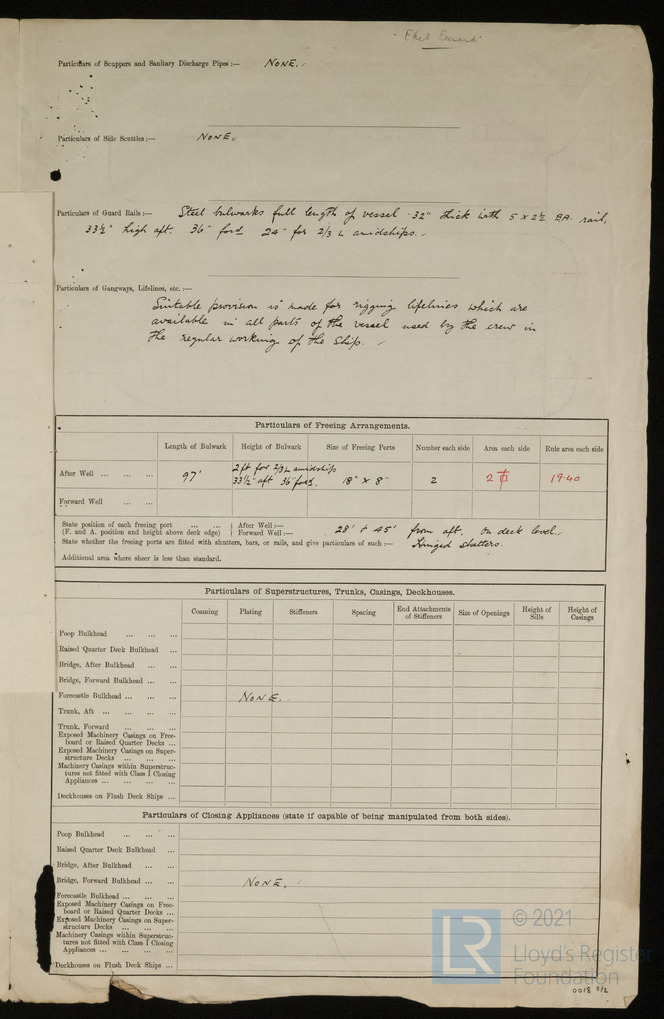 Particulars of Scuppers and Sanitary Discharge Pipes :— NONE.
Particulars of Side Scuttles :— NONE.
Particulars of Guard Rails :— Steel bulwarks full length of vessel .32" thick with 5 x 2½ BA. rail,
33½" high aft. 36" ford 24" for 2/3 L amidships.
Particulars of Gangways, Lifelines, etc. :—
Suitable provision is made for rigging lifelines which are
available in all parts of the vessel used by the crew in
the regular working of the ship.
Particulars of Freeing Arrangements.
Length of Bulwark Height of Bulwark Size of Freeing Ports Number each side Area each side Rule area each side
After Well ... ... ... 97' 2 ft for 2/3 L amidship 33½" aft 36" ford. 18" x 8" 2 2 19.40
Forward Well ... ...
State position of each freeing port ... ... After Well :— 28' & 45' from aft. on deck level.
(F. and A. position and height above deck edge) Forward Well :—
State whether the freeing ports are fitted with shutters, bars, or rails, and give particulars of such :— Hinged shutters.
Additional area where sheer is less than standard.
Particulars of Superstructures, Trunks, Casings, Deckhouses.
Coaming Plating Stiffeners Spacing End Attachments of Stiffeners Size of Openings Height of Sills Height of Casings
Poop Bulkhead ... ... ...
Raised Quarter Deck Bulkhead ...
Bridge, After Bulkhead ... ...
Bridge, Forward Bulkhead ... ...
Forecastle Bulkhead ... ... ... NONE.
Trunk, Aft ... ... ... ...
Trunk, Forward ... ... ...
Exposed Machinery Casings on Free-
board or Raised Quarter Decks ...
Exposed Machinery Casings on Super-
structure Decks ... ... ...
Machinery Casings within Superstruc-
tures not fitted with Class I Closing
Appliances ... ... ... ...
Deckhouses on Flush Deck Ships ...
Particulars of Closing Appliances (state if capable of being manipulated from both sides).
Poop Bulkhead ... ... ...
Raised Quarter Deck Bulkhead ...
Bridge, After Bulkhead ... ...
Bridge, Forward Bulkhead ... ... NONE.
Forecastle Bulkhead ... ... ...
Exposed Machinery Casings on Free-
board or Raised Quarter Decks ...
Exposed Machinery Casings on Super-
structure Decks ... ... ...
Machinery Casings within Superstruc-
tures not fitted with Class I Closing
Appliances ... ... ... ...
Deckhouses on Flush Deck Ships ...
LR © 2021
Lloyd's Register
Foundation
0018 2/2